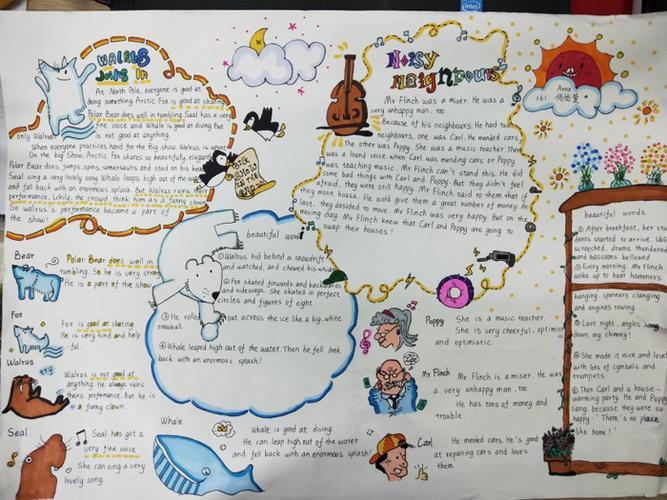 WALRUS
JOINS IN
At North Pole, everyone is good at
doing something Arctic Fox is good at skating
Polar Bear does well in tumbling Seal has a very
fine voice and Whale is good at diving But
only Walrus is not good at anything
When everyone practices hard for the Big show, Walrus is upset
On the big Show. Arctic Fox skates so beautifully, elegantly
Polar Bear does, jumps, spins, somersaults and stood on his head
Seal sing a very lovely song Whale leaps high out of the water
and fall back with an enormous splash. But Walrus ruins their
performance. Lckily, the crowd think him as a funny clown
So walrus's performance became a part of
the show!
BIG
SHOW
Noisy
Neighbours
Mr Flinch was a miser. He was a
very unhappy man, too.
Because of his neighbours. He had two
neighbours, one was Carl. He mended cars
The other was Poppy. She was a music teacher. There
was a lound voice when Carl was mending cars or Poppy
was teaching music. Mr Flinch can't stand this. He did
some bad things with Carl and Poppy. But they didn't feel
afraid, they were still happy. Mr Flinch said to them that if
they move house. He would give them a great number of money. At
last, they desided to move. Mr Flinch was very happy. But on the
moving day. Mr Flinch knew that Carl and Poppy are going to
swap their houses!
Anna
161
beautiful word
① Walrus hid behind a snowdrift
and watched, and chewed his whiskers
② Fox skated forwards and backwards
and sideways. She skated in perfect
circles and figures of eight.
③ He rolled out across the ice like a big, white
snowball.
④ Whale leaped high out of the water. Then he fell
back with an enormous splash!
Bear
Polar Bear does well in
tumbling. So he is very strong
He is a part of the show
Fox
Fox is good at skating
He is very kind and help
-ful.
Walrus
try
Walrus is not good at
anything. He always ruins
theirs performance. But he is
a funny clown.
Seal
Seal has got a
very fine voice
She can sing a very
lovely song.
Whale
Whale is good at diving
He can leap high out of the water
and fell back with an enormous splash!
Poppy
She is a music teacher.
She is very cheerful, optimism
and optimistic.
Mr Flinch
Mr Flinch is a miser. He was
a very unhappy man, too.
He has tons of money and
trouble.
Carl
He mended cars. He's good
at repairing cars and loves
them.
beautiful words
① After breakfast, her stu
dents started to arrive.
screeched, drums thundered
and bassoons bellowed
② Every morning, Mr Flinch
woke up to hear hammers
banging, spanners clanging
and engines roaring.
③ Last night, angles
down my chimney!
④ She made it nice and loud
with lots of cymbals and
trumpets.
⑤ Then Carl and a house-
warming party. He and Poppy
sang, because they were so
happy "There's no place
like home!"